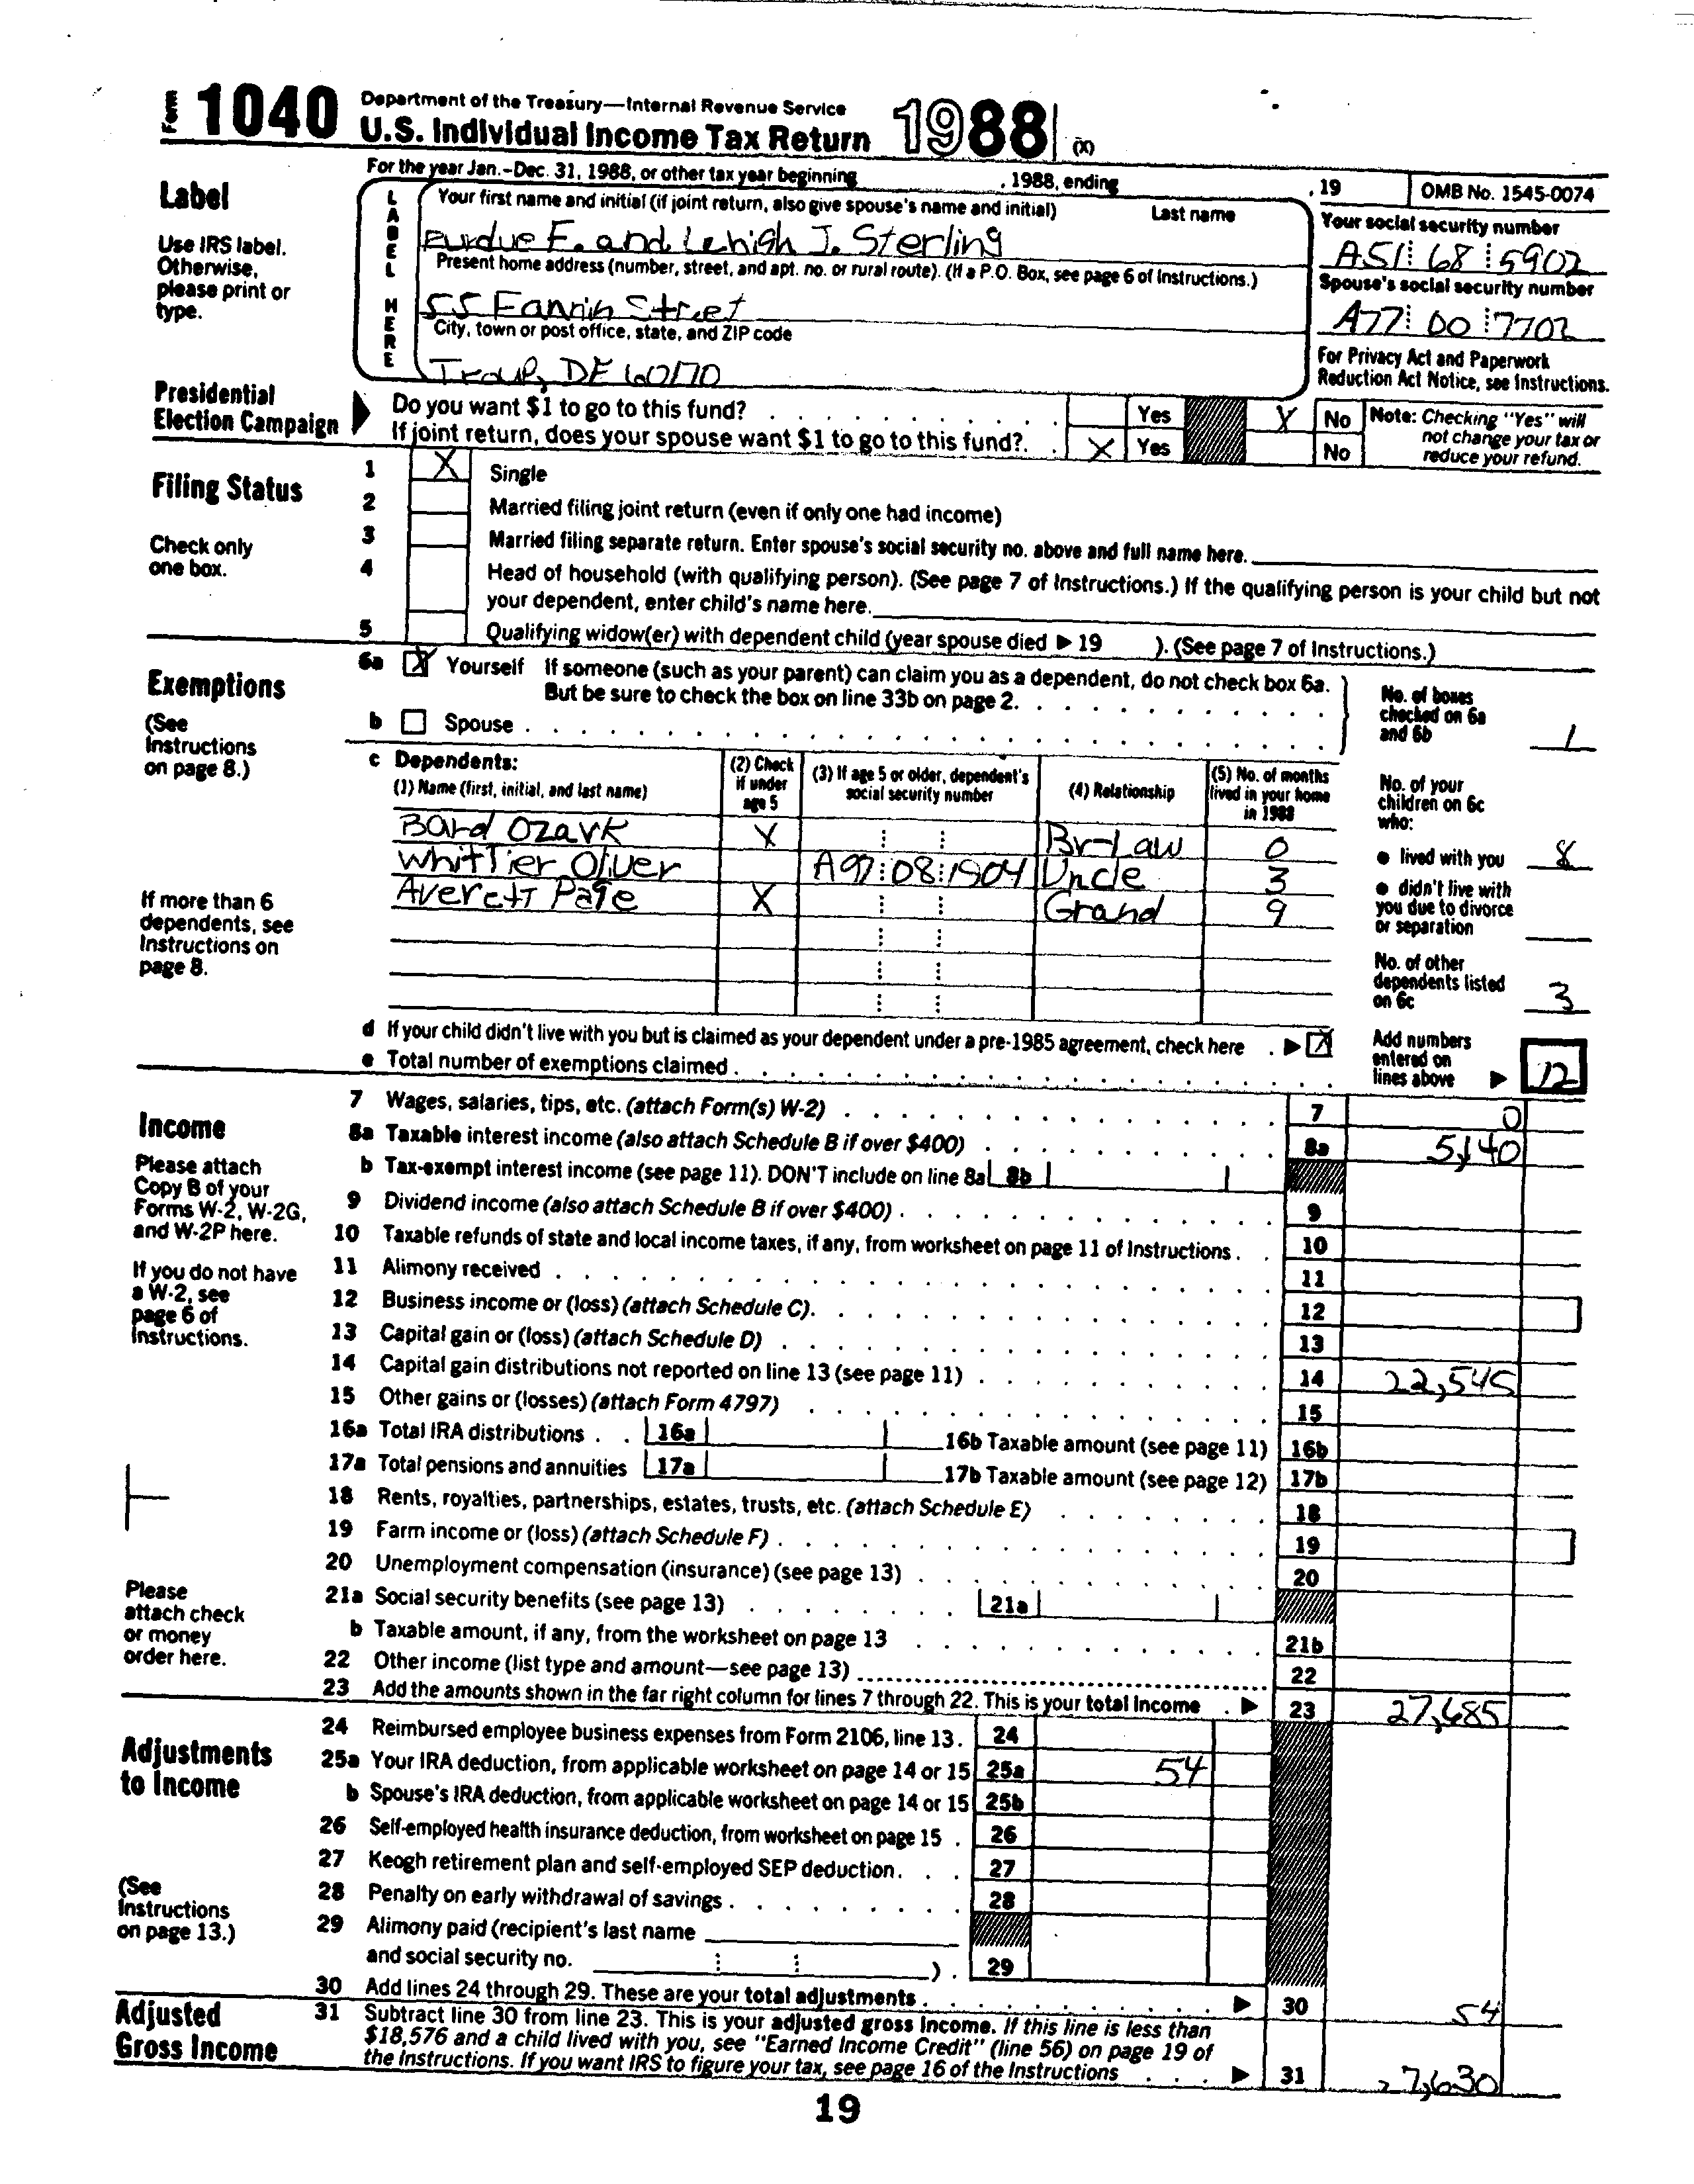 Form 1040 Department of the Treasury—Internal Revenue Service
U.S. Individual Income Tax Return 1988 (X)
For the year Jan.-Dec. 31, 1988, or other tax year beginning , 1988, ending , 19 OMB No. 1545-0074
Label
Use IRS label.
Otherwise,
please print or
type.
LABEL HERE
Your first name and initial (if joint return, also give spouse's name and initial) Last name
Purdue E. and Lehigh J. Sterling
Your social security number
A51 68 5902
Present home address (number, street, and apt. no. or rural route). (If a P.O. Box, see page 6 of Instructions.)
55 Fannin Street
Spouse's social security number
A77 00 7702
City, town or post office, state, and ZIP code
Troup, DE 60170
For Privacy Act and Paperwork
Reduction Act Notice, see Instructions.
Presidential
Election Campaign
Do you want $1 to go to this fund? Yes X No
If joint return, does your spouse want $1 to go to this fund? X Yes No
Note: Checking "Yes" will
not change your tax or
reduce your refund.
Filing Status
Check only
one box.
1 X Single
2 Married filing joint return (even if only one had income)
3 Married filing separate return. Enter spouse's social security no. above and full name here.
4 Head of household (with qualifying person). (See page 7 of Instructions.) If the qualifying person is your child but not
your dependent, enter child's name here.
5 Qualifying widow(er) with dependent child (year spouse died ▶ 19 ). (See page 7 of Instructions.)
Exemptions
(See
Instructions
on page 8.)
If more than 6
dependents, see
Instructions on
page 8.
6a X Yourself If someone (such as your parent) can claim you as a dependent, do not check box 6a.
But be sure to check the box on line 33b on page 2.
b Spouse
No. of boxes
checked on 6a
and 6b 1
c Dependents:
(1) Name (first, initial, and last name)
(2) Check
if under
age 5
(3) If age 5 or older, dependent's
social security number
(4) Relationship
(5) No. of months
lived in your home
in 1988
Bard Ozark X Br-Law 0
Whittier Oliver A97 08 1904 Uncle 3
Averett Page X Grand 9
No. of your
children on 6c
who:
● lived with you 8
● didn't live with
you due to divorce
or separation
No. of other
dependents listed
on 6c 3
d If your child didn't live with you but is claimed as your dependent under a pre-1985 agreement, check here ▶ X
e Total number of exemptions claimed
Add numbers
entered on
lines above ▶ 12
Income
Please attach
Copy B of your
Forms W-2, W-2G,
and W-2P here.
If you do not have
a W-2, see
page 6 of
Instructions.
Please
attach check
or money
order here.
7 Wages, salaries, tips, etc. (attach Form(s) W-2) 7 0
8a Taxable interest income (also attach Schedule B if over $400) 8a 5,140
b Tax-exempt interest income (see page 11). DON'T include on line 8a 8b
9 Dividend income (also attach Schedule B if over $400) 9
10 Taxable refunds of state and local income taxes, if any, from worksheet on page 11 of Instructions 10
11 Alimony received 11
12 Business income or (loss) (attach Schedule C) 12
13 Capital gain or (loss) (attach Schedule D) 13
14 Capital gain distributions not reported on line 13 (see page 11) 14 22,545
15 Other gains or (losses) (attach Form 4797) 15
16a Total IRA distributions 16a 16b Taxable amount (see page 11) 16b
17a Total pensions and annuities 17a 17b Taxable amount (see page 12) 17b
18 Rents, royalties, partnerships, estates, trusts, etc. (attach Schedule E) 18
19 Farm income or (loss) (attach Schedule F) 19
20 Unemployment compensation (insurance) (see page 13) 20
21a Social security benefits (see page 13) 21a
b Taxable amount, if any, from the worksheet on page 13 21b
22 Other income (list type and amount—see page 13) 22
23 Add the amounts shown in the far right column for lines 7 through 22. This is your total income ▶ 23 27,685
Adjustments
to Income
(See
Instructions
on page 13.)
24 Reimbursed employee business expenses from Form 2106, line 13. 24
25a Your IRA deduction, from applicable worksheet on page 14 or 15 25a 54
b Spouse's IRA deduction, from applicable worksheet on page 14 or 15 25b
26 Self-employed health insurance deduction, from worksheet on page 15 26
27 Keogh retirement plan and self-employed SEP deduction 27
28 Penalty on early withdrawal of savings 28
29 Alimony paid (recipient's last name
and social security no. ). 29
30 Add lines 24 through 29. These are your total adjustments ▶ 30 54
Adjusted
Gross Income
31 Subtract line 30 from line 23. This is your adjusted gross income. If this line is less than
$18,576 and a child lived with you, see "Earned Income Credit" (line 56) on page 19 of
the Instructions. If you want IRS to figure your tax, see page 16 of the Instructions ▶ 31 27,630
19